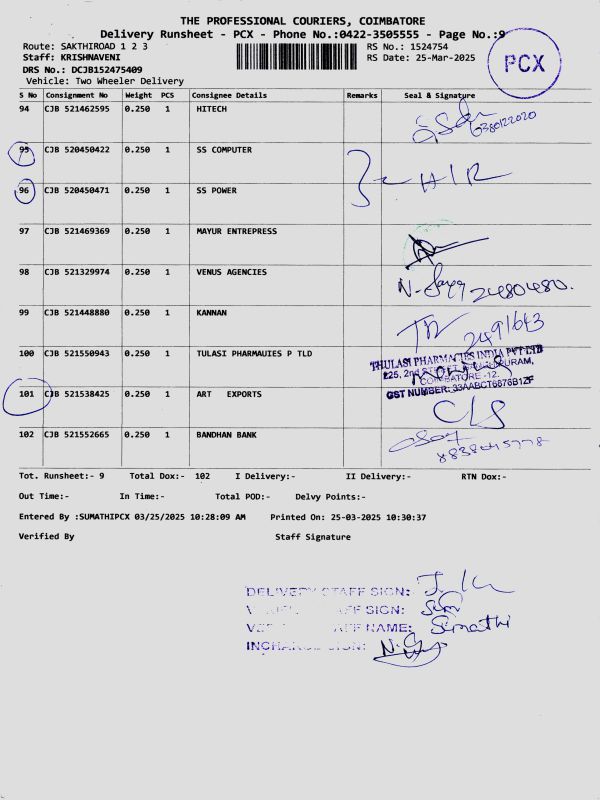 THE PROFESSIONAL COURIERS, COIMBATORE
Delivery Runsheet - PCX - Phone No.:0422-3505555 - Page No.:9
Route: SAKTHIROAD 1 2 3
RS No.: 1524754
Staff: KRISHNAVENI
RS Date: 25-Mar-2025
PCX
DRS No.: DCJB152475409
Vehicle: Two Wheeler Delivery
S No Consignment No Weight PCS Consignee Details Remarks Seal & Signature
94 CJB 521462595 0.250 1 HITECH
95 CJB 520450422 0.250 1 SS COMPUTER
96 CJB 520450471 0.250 1 SS POWER
97 CJB 521469369 0.250 1 MAYUR ENTREPRESS
98 CJB 521329974 0.250 1 VENUS AGENCIES
99 CJB 521448880 0.250 1 KANNAN
100 CJB 521550943 0.250 1 TULASI PHARMAUIES P TLD
THULASI PHARMACIES INDIA PVT LTD
COIMBATORE -12.
101 CJB 521538425 0.250 1 ART EXPORTS
GST NUMBER: 33AABCT6676B1ZF
CLS
102 CJB 521552665 0.250 1 BANDHAN BANK
Tot. Runsheet:- 9 Total Dox:- 102 I Delivery:- II Delivery:- RTN Dox:-
Out Time:- In Time:- Total POD:- Delvy Points:-
Entered By :SUMATHIPCX 03/25/2025 10:28:09 AM Printed On: 25-03-2025 10:30:37
Verified By Staff Signature
DELIVERY STAFF SIGN:
SIGN:
NAME: Sumathi
INCHARGE SIGN: